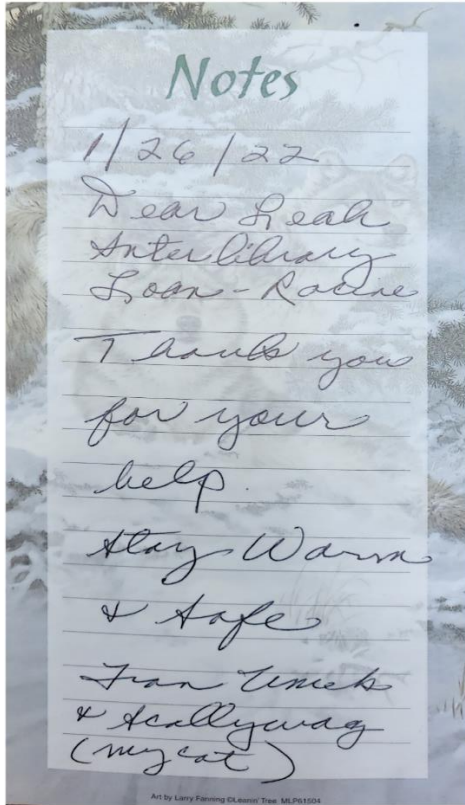 Notes
1/26/22
Dear Leah
Interlibrary
Loan - Racine
Thank you
for your
help.
Stay Warm
& Safe
Fran
& Scallywag
(my cat)
Art by Larry Fanning ©Leanin' Tree MLP61504